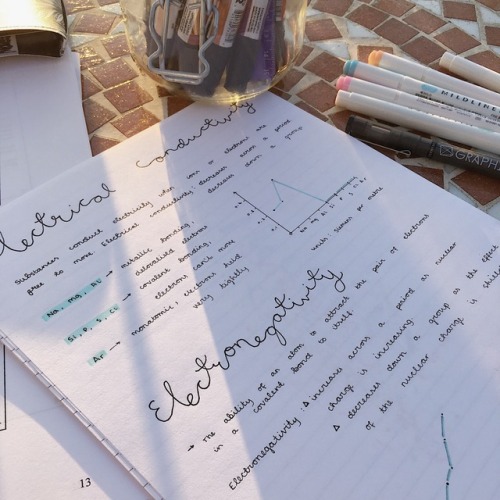 Electrical conductivity
substances conduct electricity when ions or electrons are
free to move
Electrical conductivity: decreases across a period
decreases down a group
Na, Mg, Al → metallic bonding,
delocalised electrons
Si, P, S, Cl → covalent bonding,
electrons can't move
Ar → monatomic, electrons held
very tightly
units, siemens per metre
Electronegativity
→ the ability of an atom to attract the pair of electrons
in a covalent bond to itself.
Electronegativity: Δ increases across a period as nuclear
charge is increasing
Δ decreases down a group as the effect
of the nuclear charge is
13
MILDLINER
GRAPH